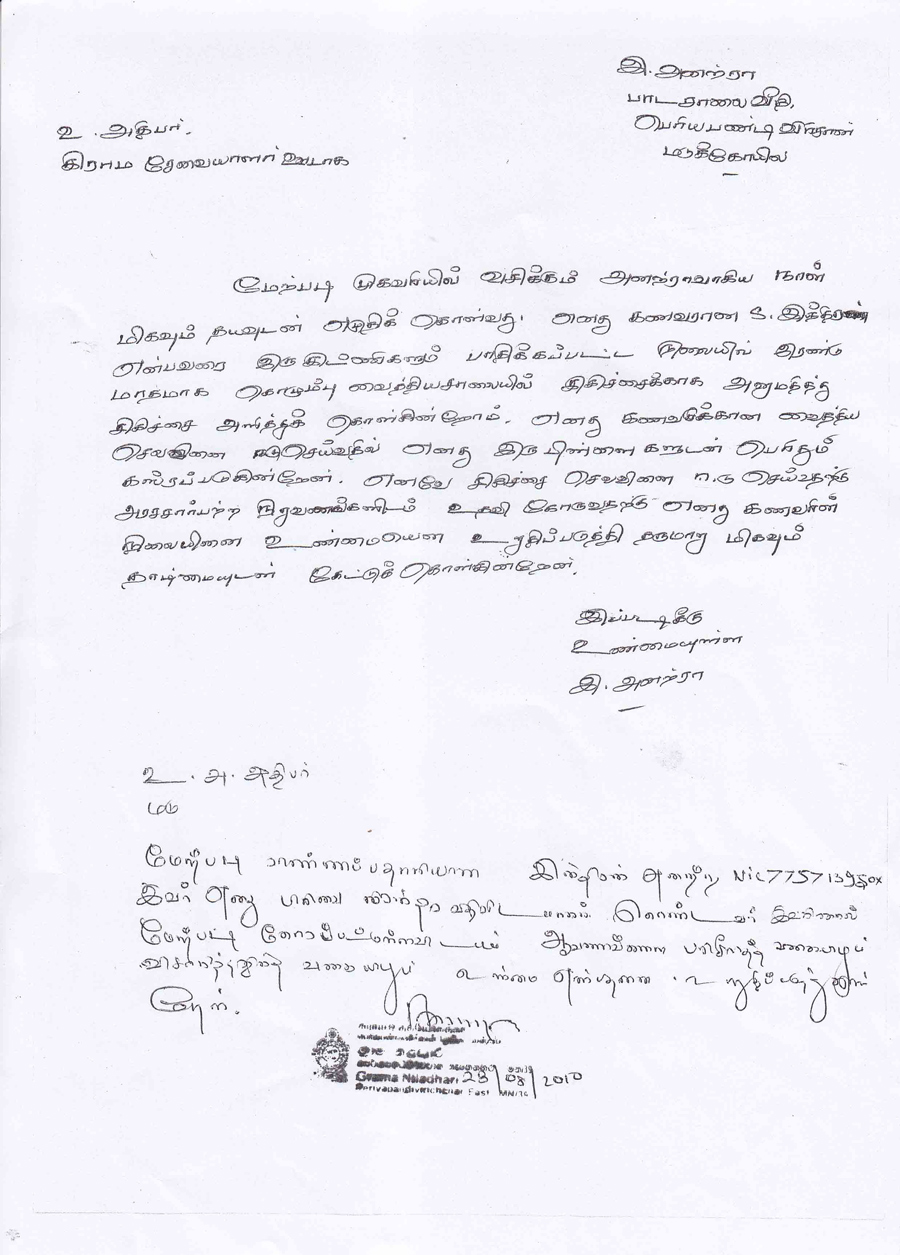 இ. அனற்ரா
பாடசாலை வீதி,
பெரியபண்டிவிரிசான்
மடுக்கோயில்
உ. அதிபர்.
கிராம சேவையாளர் ஊடாக
மேற்படி முகவரியில் வசிக்கும் அனற்ராவாகிய நான்
மிகவும் தயவுடன் எழுதிக் கொள்வது. எனது கணவரான S. இந்திரன்
என்பவரை இரு கிட்ணிகளும் பாதிக்கப்பட்ட நிலையில் இரண்டு
மாதமாக கொழும்பு வைத்தியசாலையில் சிகிச்சைக்காக அனுமதித்து
சிகிச்சை அளித்துக் கொள்கின்றோம். எனது கணவருக்கான வைத்திய
செலவினை ஈடுசெய்வதில் எனது இரு பிள்ளைகளுடன் பெரிதும்
கஸ்ரப்படுகின்றேன். எனவே சிகிச்சை செலவினை ஈடு செய்வதற்கு
அரசசார்பற்ற நிறுவணங்களிடம் உதவி கோருவதற்கு எனது கணவரின்
நிலையினை உண்மையென உறுதிப்படுத்தி தருமாறு மிகவும்
தாழ்மையுடன் கேட்டுக் கொள்கின்றேன்.
இப்படிக்கு
உண்மையுள்ள
இ. அனற்ரா
உ. அ. அதிபர்
மடு
மேற்படி விண்ணப்பதாரியான இந்திரன் அனற்ரா NIC 775713950x
இவர் எனது பிரிவை வதிவிடமாகக் கொண்டவர் இவரினால்
மேற்படி ஆவணங்களை பரிசீலித்த வகையிலும்
விசாரித்ததின் வகையிலும் உண்மை என்பதனை உறுதிப்படுத்துகின்
றேன்.
Grama Niladhari 23/08/2010
Periyapandivirichchan East MN/36